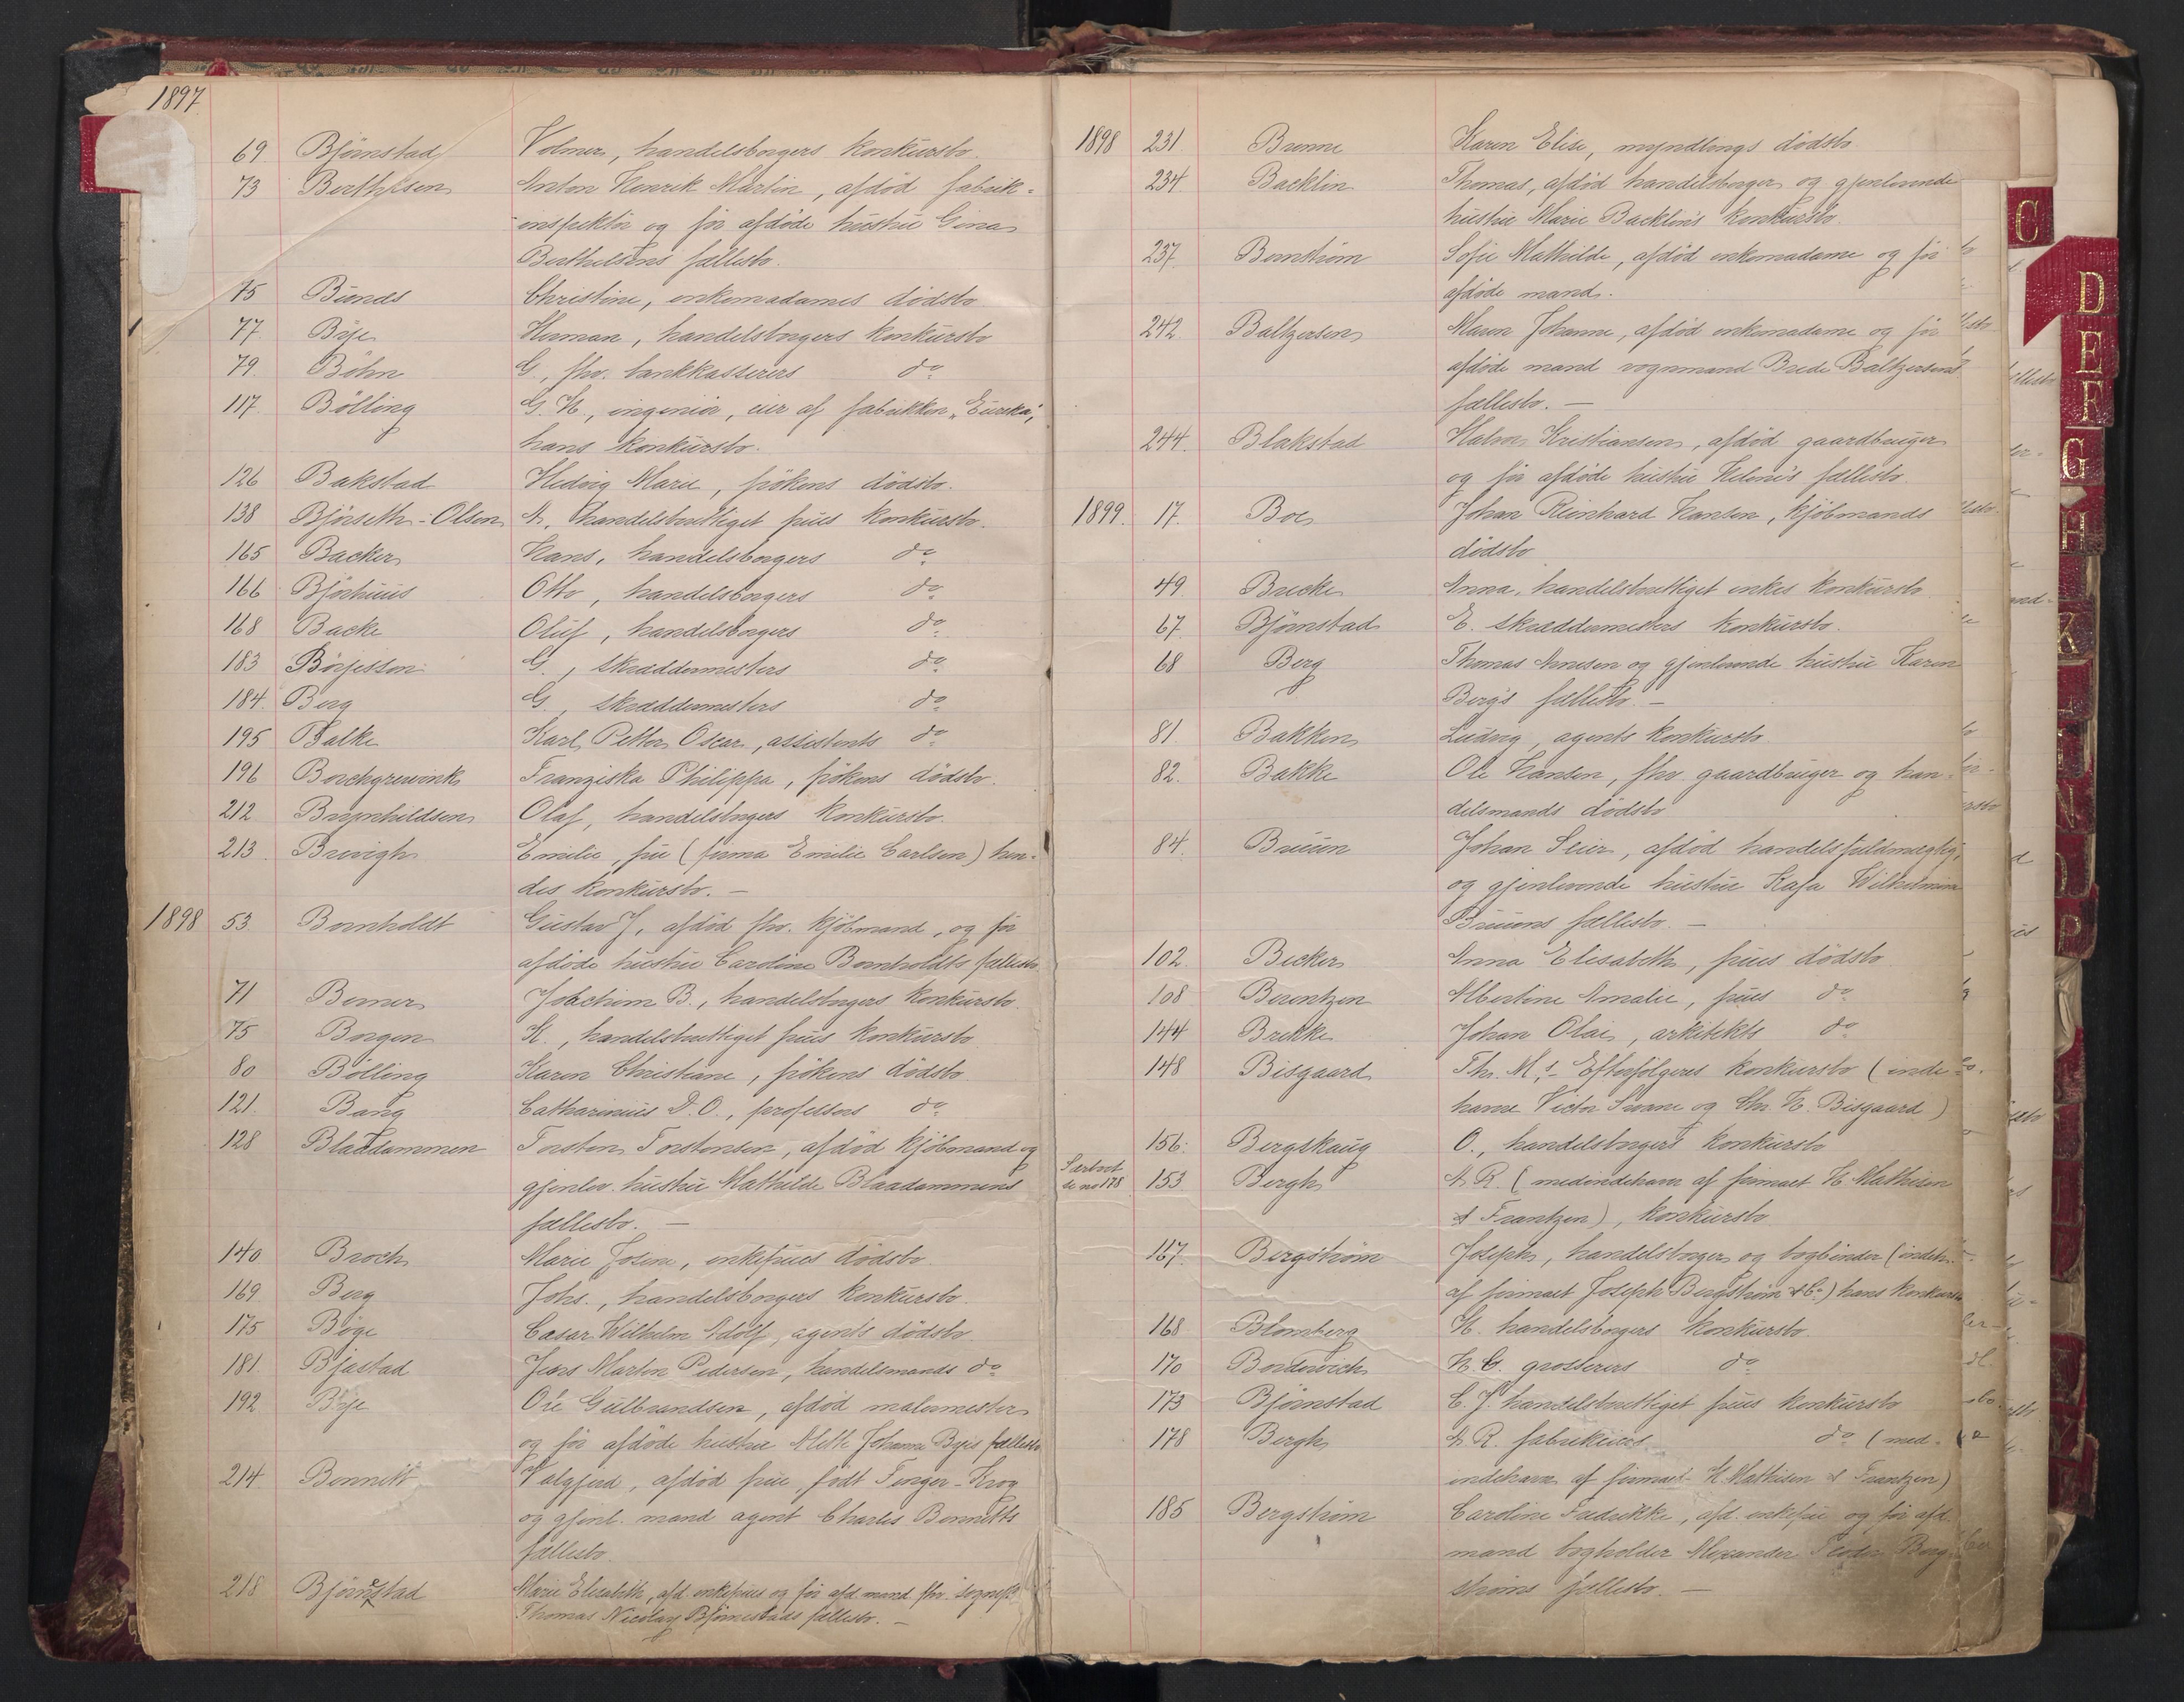 1897
69 Bjørnstad Volmer, handelsborgers konkursbo.
73 Berthelsen Anton Henrik Martin, afdød fabrik-
inspektør og før afdøde hustru Gina
Berthelsens fællesbo.
75 Bunds Christine, enkemadames dødsbo
77. Bye Herman, handelsborgers konkursbo
79. Böhn G., fhv. bankkasserers do
117. Bölling G. H., ingeniör, eier af fabrikken "Eureka",
hans konkursbo.
126 Bakstad Hedvig Marie, frökens dödsbo.
138 Bjørseth-Olsen A., handelsberettiget frues konkursbo.
165 Backer Hans, handelsborgers do
166 Bjørhuus Otto, handelsborgers do
168 Backe Oluf, handelsborgers do
183 Börjesson G., skræddermesters do
184. Berg G., skræddermesters do
195 Balke Karl Petter Oscar, assistents do
196 Borchgrevink Franziska Philippa, frökens dödsbo.
212. Brynhildsen Olaf, handelsborgers konkursbo.
213. Brevigh Emilie, frue (firma Emilie Carlsen) hen-
des konkursbo. —
1898 53. Bornholdt Gustav J., afdöd fhv. kjöbmand, og för
afdöde hustru Caroline Bornholdts fællesbo
71 Berner Joachim B., handelsborgers konkursbo.
75 Borgen K., handelsberettiget frues konkursbo
80 Bölling Karen Christiane, frökens dödsbo
121. Bang Catharinus D. O., professors do
128 Blaadammen Torsten Torstensen, afdöd kjöbmand og
gjenlev. hustru Mathilde Blaadammens
fællesbo. —
140 Broch Marie Josine, enkefrues dödsbo
169 Berg Johs., handelsborgers konkursbo.
175 Bøge Cæsar Wilhelm Adolf, agents dödsbo
181. Bjastad Jens Martin Pedersen, handelsmands do
192 Bye Ole Gulbrandsen, afdöd malermester
og för afdöde hustru Mette Johanne Byes fællesbo
214. Bennett Valgjerd, afdöd frue, födt Finger-Krog
og gjenl. mand agent Charles Bennetts
fællesbo.
218 Bjørnestad Marie Elisabeth, afd. enkefrues og før afd. mand fhv. sognepr.
Thomas Nicolay Bjørnestads fællesbo. —
1898 231. Brunne Karen Elise, myndlings dödsbo.
234. Backlin Thomas, afdöd handelsborger og gjenlevende
hustru Marie Backlins konkursbo.
237. Bernström Sofie Mathilde, afdöd enkemadame og før
afdöde mand.
242. Baltzersen Maren Johanne, afdöd enkemadame og før
afdöde mand vognmand Brede Baltzersens
fællesbo. —
244. Blakstad Halvor Kristiansen, afdöd gaardbruger
og før afdøde hustru Helene's fællesbo.
1899. 17. Boe Johan Reinhard Hansen, kjöbmands
dödsbo
49. Brecke Anna, handelsberettiget enkes konkursbo
67. Bjørnstad E. skræddermesters konkursbo.
68 Berg Thomas Arnesen og gjenlevende hustru Karen
Bergs fællesbo. —
81. Bakken Ludvig, agents konkursbo.
82. Bakke Ole Hansen, fhv. gaardbruger og han-
delsmands dödsbo
84. Bruun Johan Seier, afdöd handelsfuldmægtig,
og gjenlevende hustru Kaja Wilhelmine
Bruuns fællesbo. —
102. Becker Anna Elisabeth, frues dödsbo
108 Berentzen Albertine Amalie, frues do
144 Brekke Johan Olai, arkitekts do
148 Bisgaard Th. M.s Efterfølgeres konkursbo (inde
havere Victor Svane og Chr. H. Bisgaard)
156. Bergskaug O., handelsborgers konkursbo
Særbort
se no 178 153. Bergh A. R. (medindehaver af firmaet H. Mathisen
& Frantzen), konkursbo
167. Bergstrøm Joseph, handelsborger og bogbinder (indeh.
af firmaet Joseph Bergstrøm & Co) hans konkursbo
168 Blomberg H. handelsborgers konkursbo.
170 Bordewich H. C. grosserers do
173 Bjørnstad C. J. handelsberettiget frues konkursbo
178 Bergh A. R. fabrikeiers do (med-
indehaver af firmaet H. Mathisen & Frantzen)
185 Bergstrøm Caroline Fredrikke, afd. enkefrue og før afd.
mand bogholder Alexander Berg-
strøms fællesbo. —
C
D
E
F
G
H
K
L
N
O
P